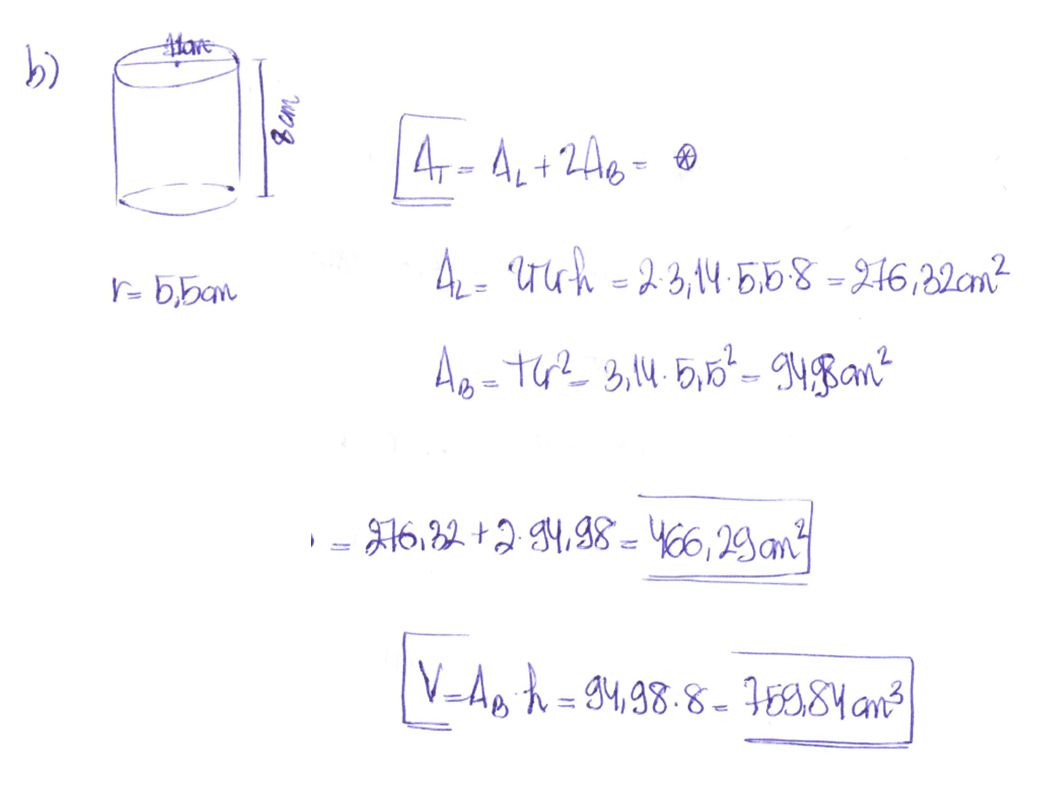 b)
11cm
8 cm
A_T = A_L + 2A_B = ⊛
A_L = 2πrh = 2·3,14·5,5·8 = 276,32cm²
r = 5,5cm
A_B = πr² = 3,14·5,5² = 94,98cm²
= 276,32 + 2·94,98 = 466,29cm²
V = A_B·h = 94,98·8 = 759,84cm³